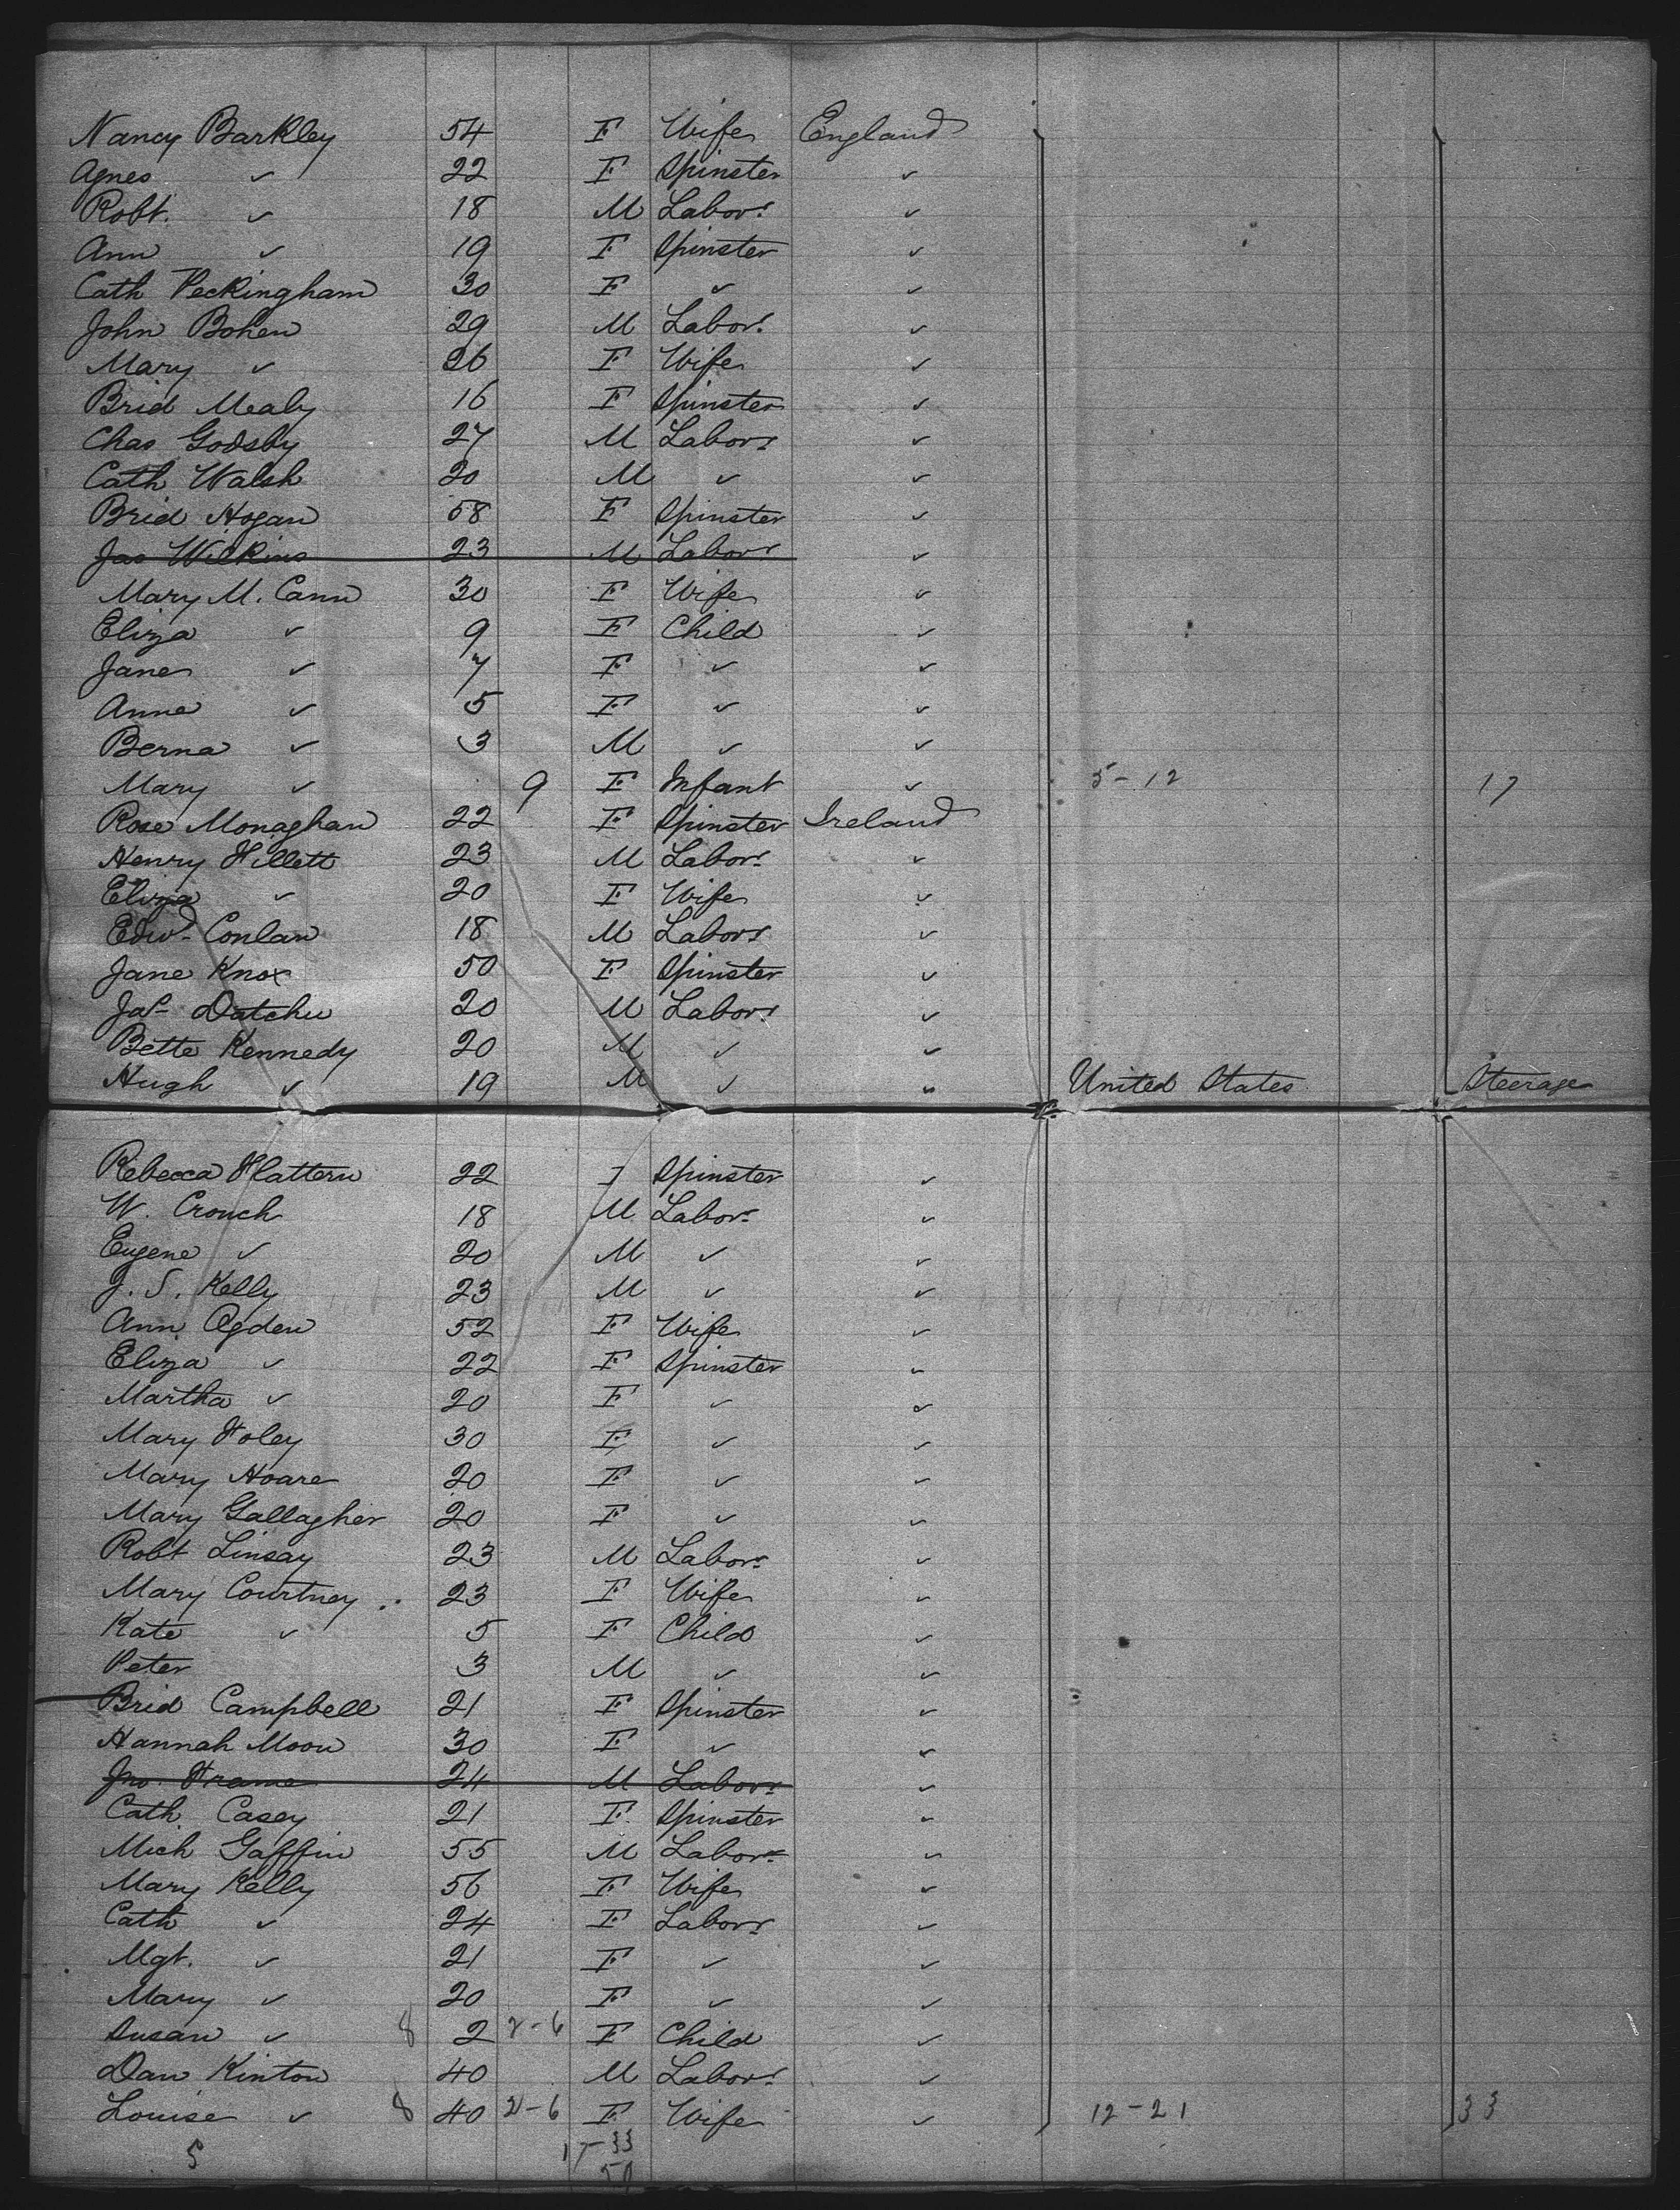 Nancy Barkley 54 F Wife England
Agnes " 22 F Spinster "
Robt. " 18 M Labor. "
Ann " 19 F Spinster "
Cath Peckingham 30 F " "
John Bohen 29 M Labor. "
Mary " 26 F Wife "
Brid Mealy 16 F Spinster "
Chas Godsby 27 M Labor. "
Cath Walsh 20 M " "
Brid Hogan 58 F Spinster "
Jas Wilkins 23 M Labor. "
Mary M. Cann 30 F Wife "
Eliza " 9 F Child "
Jane " 7 F " "
Anne " 5 F " "
Berna " 3 M " "
Mary " 9 F Infant " 5-12 17
Rose Monaghan 22 F Spinster Ireland
Henry Hillett 23 M Labor. "
Eliza " 20 F Wife "
Edwd Conlan 18 M Labor. "
Jane Knox 50 F Spinster "
Jas Datchu 20 M Labor. "
Bette Kennedy 20 M " "
Hugh " 19 M " " United States Steerage
Rebecca 22 Spinster "
W. Crouch 18 M Labor. "
Eugene " 20 M " "
J. S. Kelly 23 M " "
Ann Ogden 52 F Wife "
Eliza " 22 F Spinster "
Martha " 20 F " "
Mary Foley 30 F " "
Mary Hoare 20 F " "
Mary Gallagher 20 F " "
Robt Linsay 23 M Labor. "
Mary Courtney 23 F Wife "
Kate " 5 F Child "
Peter 3 M " "
Brid Campbell 21 F Spinster "
Hannah Moon 30 F " "
Jno. Frame 24 M Labor. "
Cath. Casey 21 F Spinster "
Mich Gaffin 55 M Labor. "
Mary Kelly 56 F Wife "
Cath " 24 F Labor. "
Mgt. " 21 F " "
Mary " 20 F " "
Susan " 8 2 2-6 F Child "
Dan Kinton 40 M Labor. "
Louise " 8 40 2-6 F Wife " 12-21 33
5 17-33
50